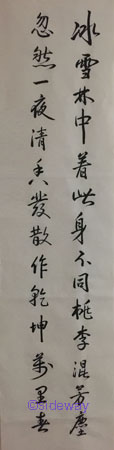 冰雪林中着此身不同桃李混芳塵
忽然一夜清香發散作乾坤萬里春
©sideway